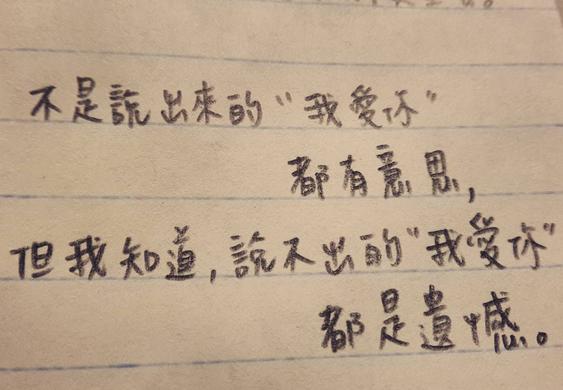 不是說出來的“我愛你”
都有意思,
但我知道,說不出的“我愛你”
都是遺憾。